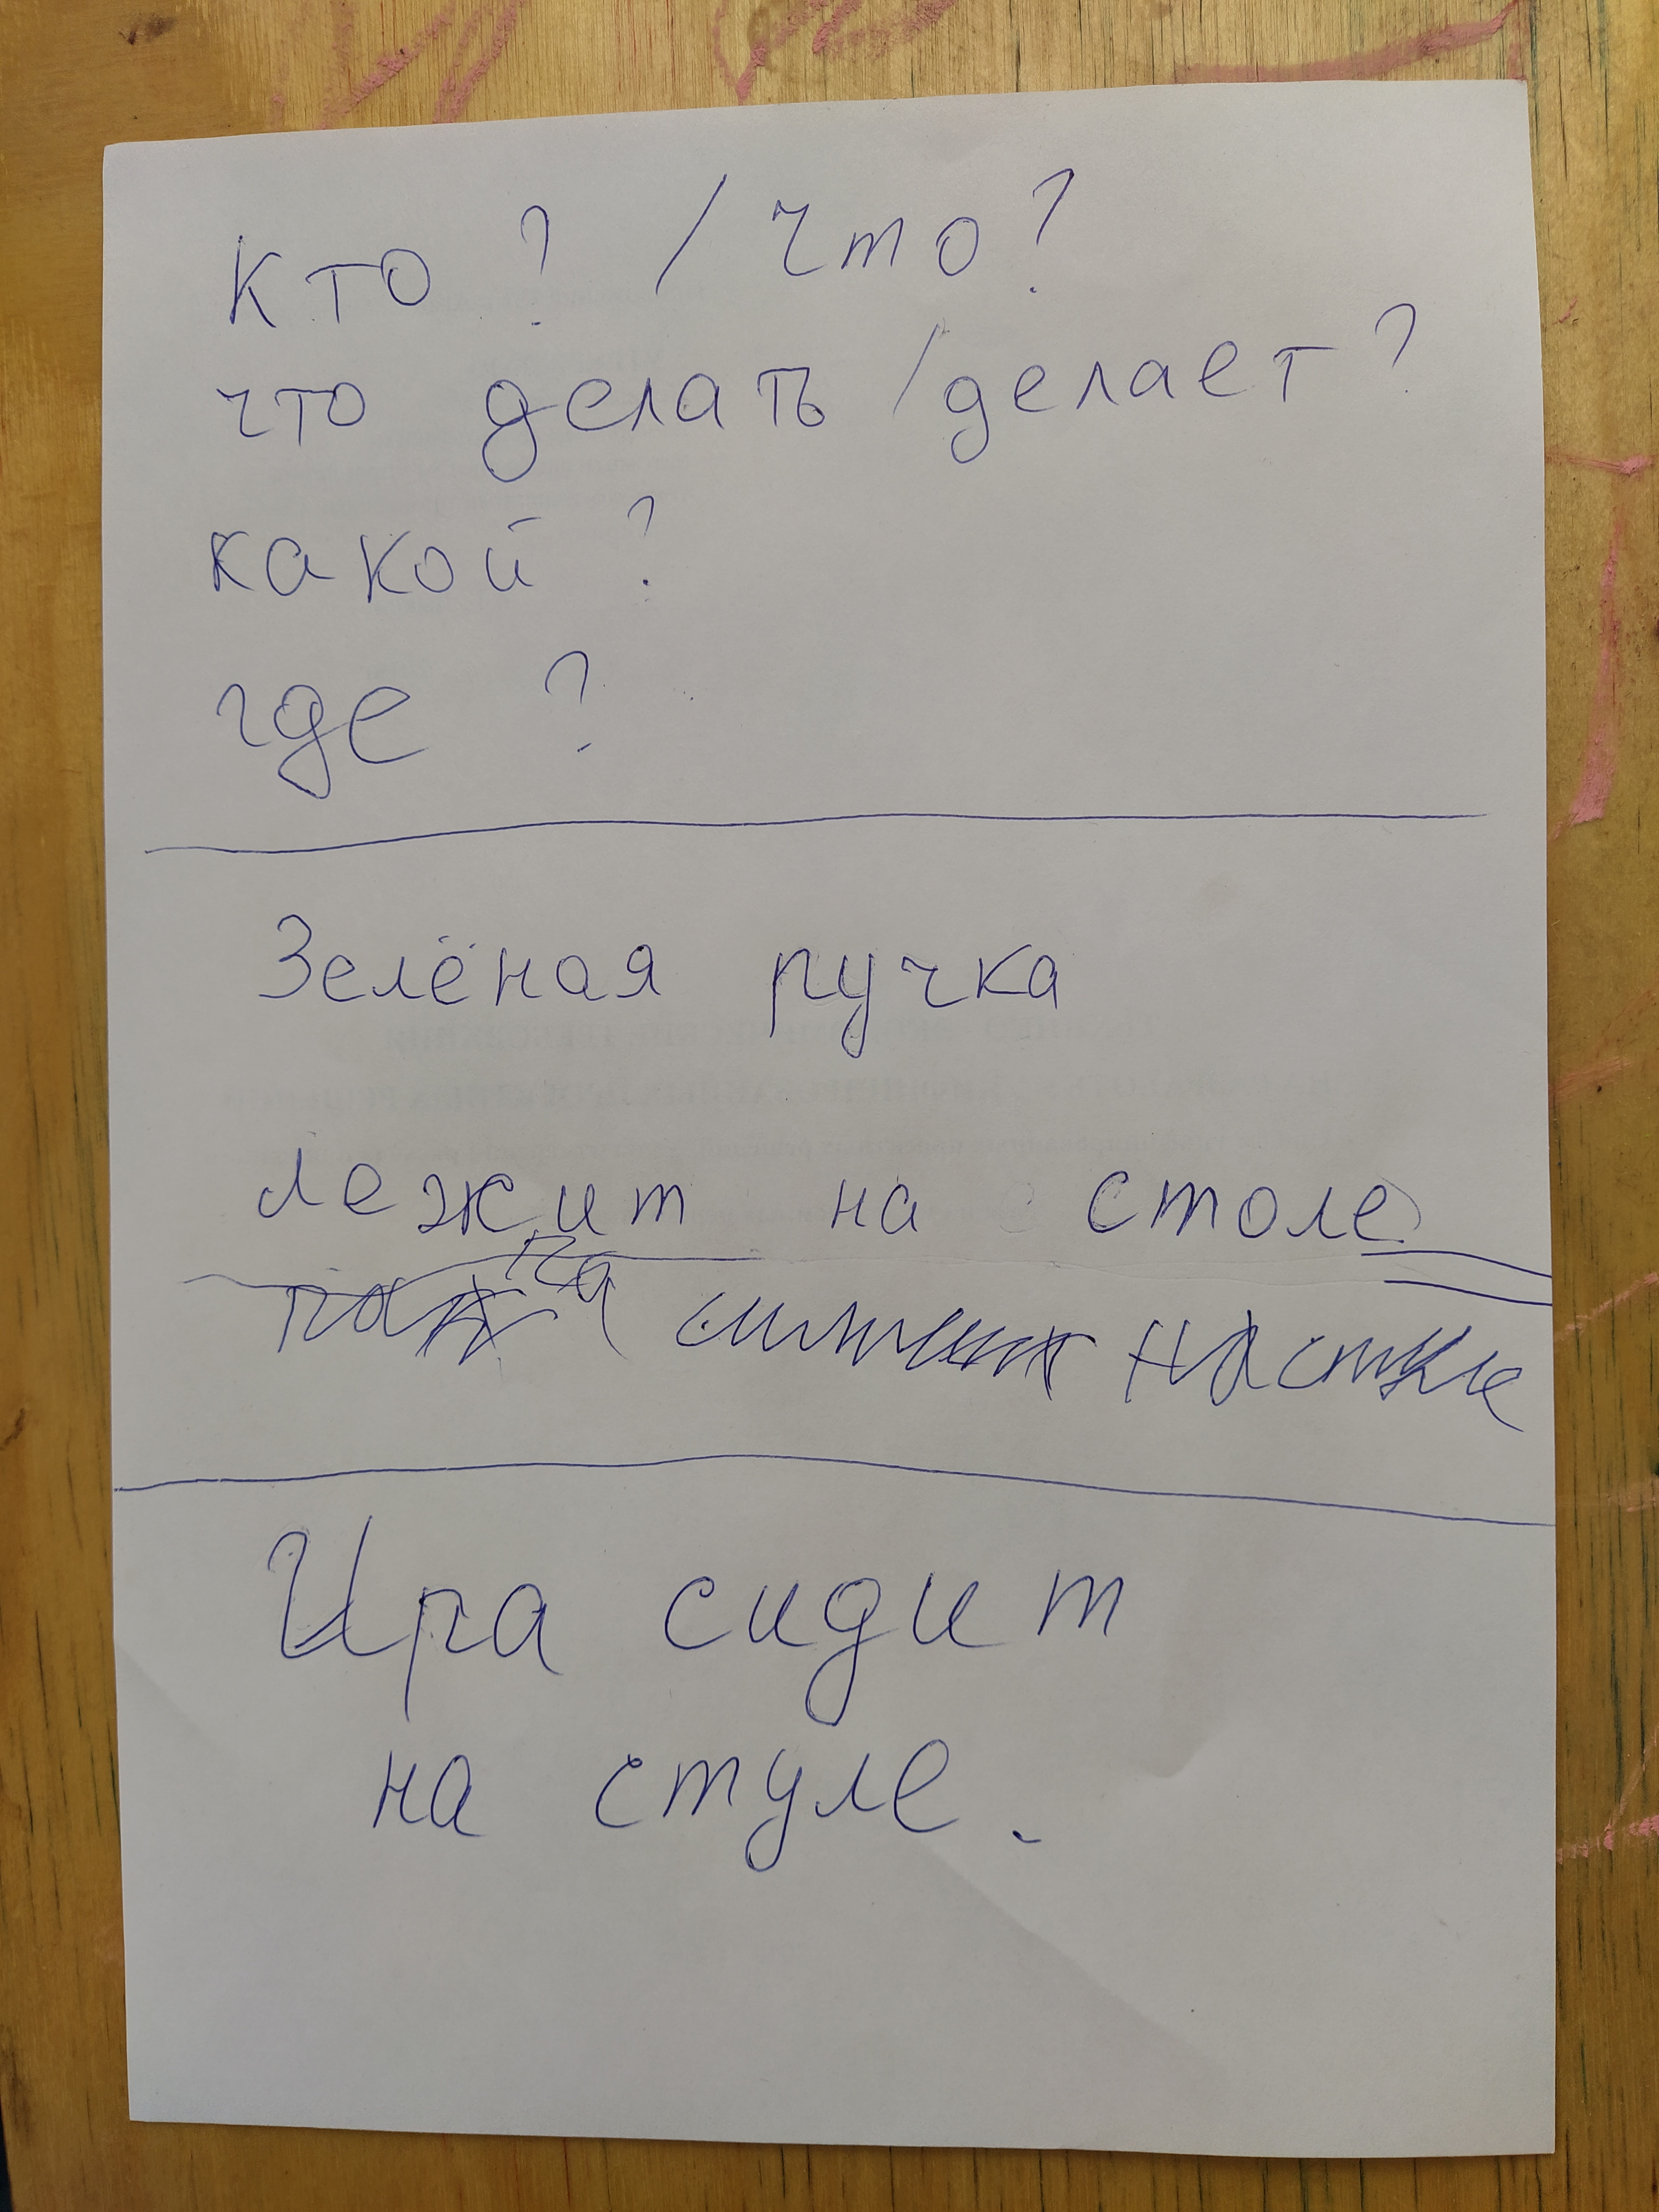 Кто ? / Что ?
что делать / делает ?
какой ?
где ?
Зелёная ручка
лежит на столе
Ира сидит
на стуле .